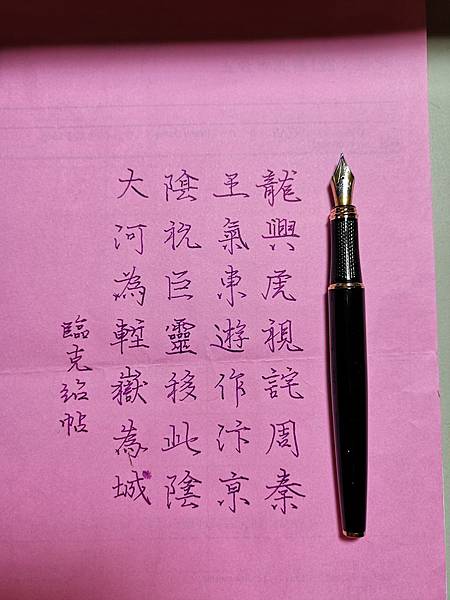 龍興虎視詫周秦
王氣東遊作汴京
陰祝巨靈移此陰
大河為塹嶽為城
臨克紹帖